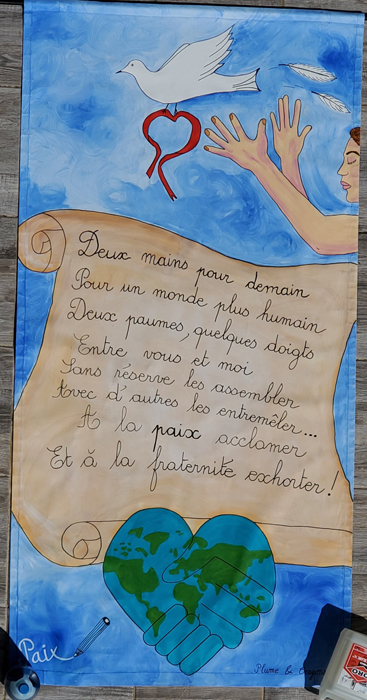 Deux mains pour demain
Pour un monde plus humain
Deux paumes, quelques doigts
Entre vous et moi
Sans réserve les assembler
Avec d'autres les entremêler...
A la paix acclamer
Et à la fraternité exhorter !
Paix
Plume &